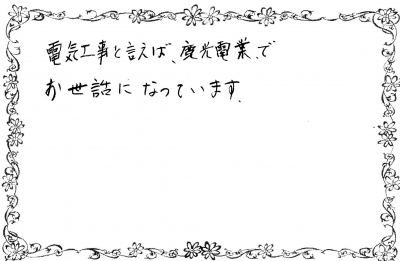 電気工事と言えば、慶光電業、で
お世話になっています。